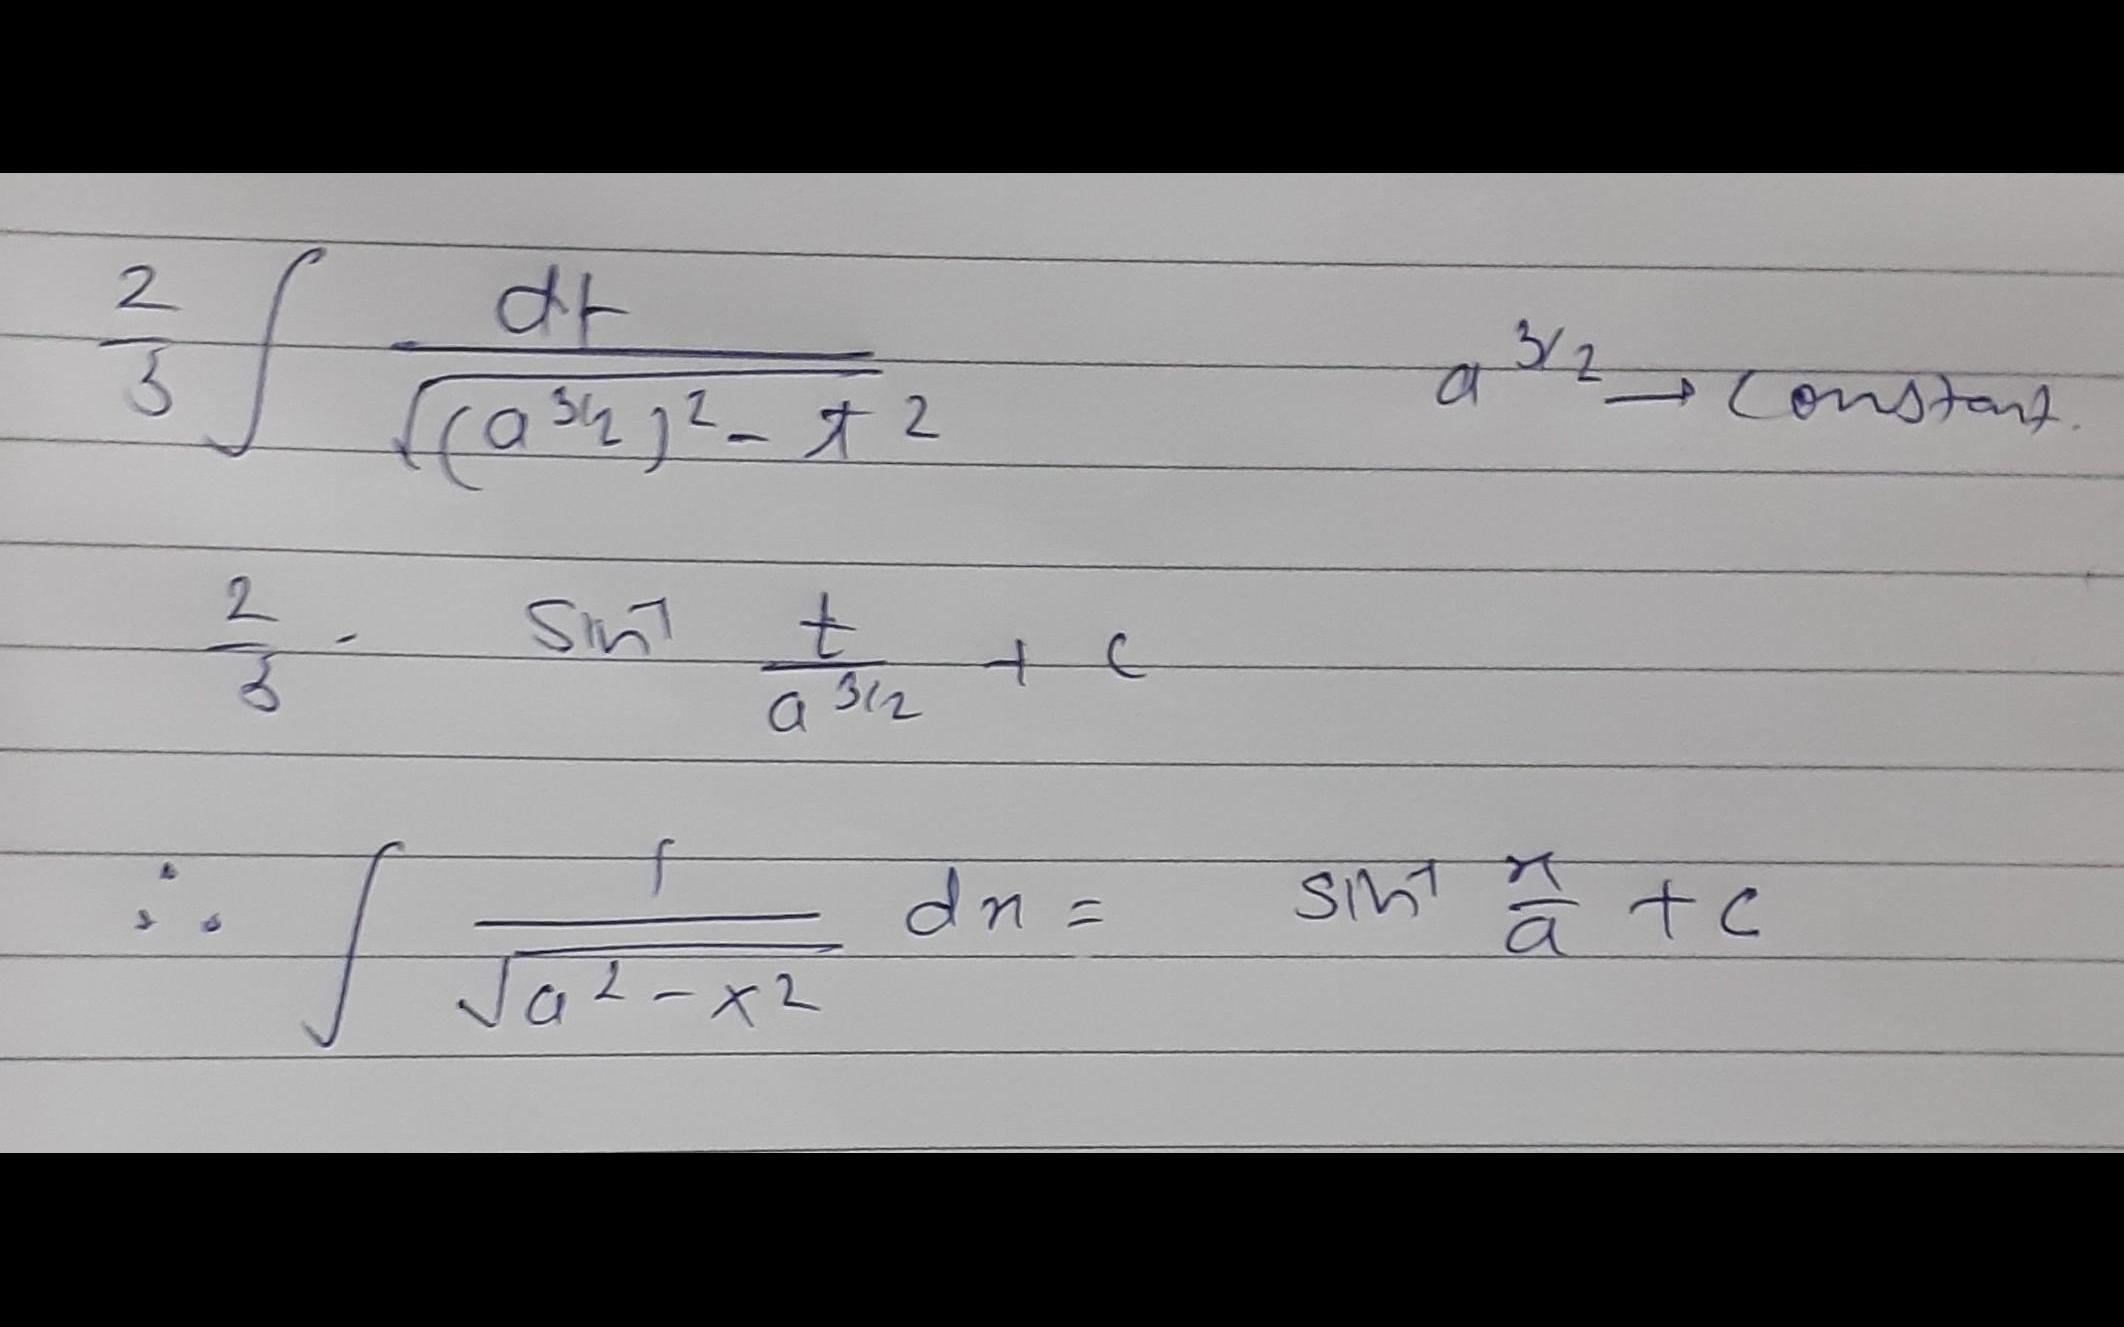 2/3 ∫ dt / √((a^3/2)^2 - t^2) a^3/2 → Constant.
2/3 · sin⁻¹ t/a^3/2 + c
∴ ∫ 1/√(a^2 - x^2) dx = sin⁻¹ x/a + c